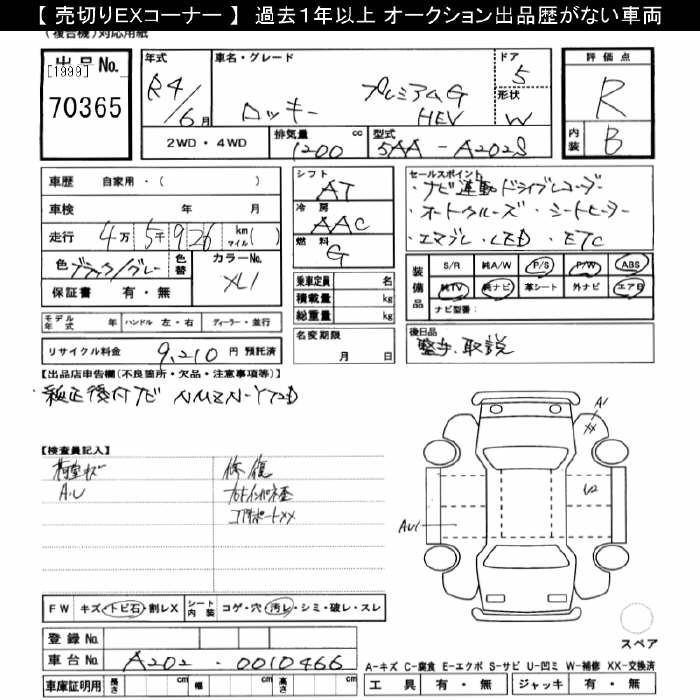 【 売切りEXコーナー 】 過去1年以上 オークション出品歴がない車両
(複合機)対応用紙
出品No.
[1999]
70365
年式
R4/6月
車名・グレード
ロッキー プレミアムG HEV
ドア
5
形状
W
評価点
R
内装
B
2WD・4WD
排気量
1200 cc
型式
5AA-A202S
車歴 自家用・( )
車検 年 月
走行 4万5千926 km マイル( )
色 ブラック/グレー
色替
カラーNo.
XL1
保証書 有・無
モデル年式 年 ハンドル 左・右 ディーラー・並行
リサイクル料金 9,210 円 預託済
シフト
AT
冷房
AAC
燃料
G
乗車定員 名
積載量 kg
総重量 kg
名変期限
月 日
セールスポイント
・ナビ連動ドライブレコーダー
・オートクルーズ・シートヒーター
・エマブレ・LED・ETC
装備品
S/R 純A/W P/S P/W ABS
純TV 純ナビ 革シート 外ナビ エアB
ナビ型番:
後日品
整手、取説
【出品店申告欄(不良箇所・欠品・注意事項等)】
・純正後付ナビ NMZN-Y72D
【検査員記入】
荷室キズ
A.U
修復
コアサポートXX
A1
XX
U2
AU1
FW キズ・トビ石・割レX
シート内装 コゲ・穴・汚レ・シミ・破レ・スレ
登録No.
車台No. A202-0010466
車庫証明用 長さ cm 幅 cm 高さ cm
スペア
A-キズ C-腐食 E-エクボ S-サビ U-凹ミ W-補修 XX-交換済
工具 有・無 ジャッキ 有・無